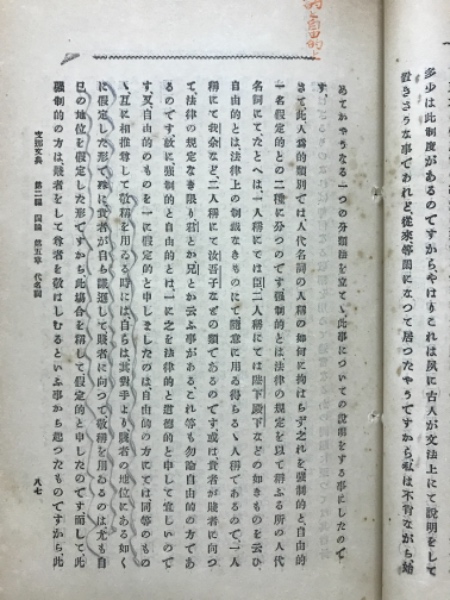 多少は此制度があるのですから、やはりこれは夙に古人が文法上にて説明をして
置きさうな事であれど、從來、等閑になつて居つたやうですから、私は不肖ながら始
めてかやうなる一つの分類法を立てゝ此事についての說明をする事にしたので
す。
さて此人爲的類別では人代名詞の人稱の如何に拘はらず、之れを强制的と、自由的
一名假定的との二種に分つのです。强制的とは、法律の規定を以て稱ふる所の人代
名詞にて、たとへば、一人稱にては臣、二人稱にては陛下殿下などの如きものを云ひ、
自由的とは、法律上の制裁なきものにて、隨意に用ゐ得らるゝ人稱であるので、一人
稱にて我余など、二人稱にて汝吾子などの類であるのです。或は貴者が賤者に向つ
て、法律の規定なき限り君とか兄とか云ふ事がある、これ等も勿論自由的の方であ
るのです。故に、强制的と自由的とは、一に之を法律的と道德的と申して宜しいので
す。又、自由的のものを一に假定的と申しましたのは、自由的の方にては同等のもの
ゝ、互に相推尊して敬稱を用ゐる時には、自らは、其對手より賤者の地位にある如く
に假定した形で、殊に貴者が自ら謙遜して賤者に向つて、敬稱を用ゐるのは、尤も自
已の地位を假定した形ですから、此場合を稱して假定的と申したのです。而して此
强制的の方は、賤者をして尊者を敬はしむるといふ事から起つたものですから、此
支那文典 第二編 詞論 第五章 代名詞
八七
的と自由的と